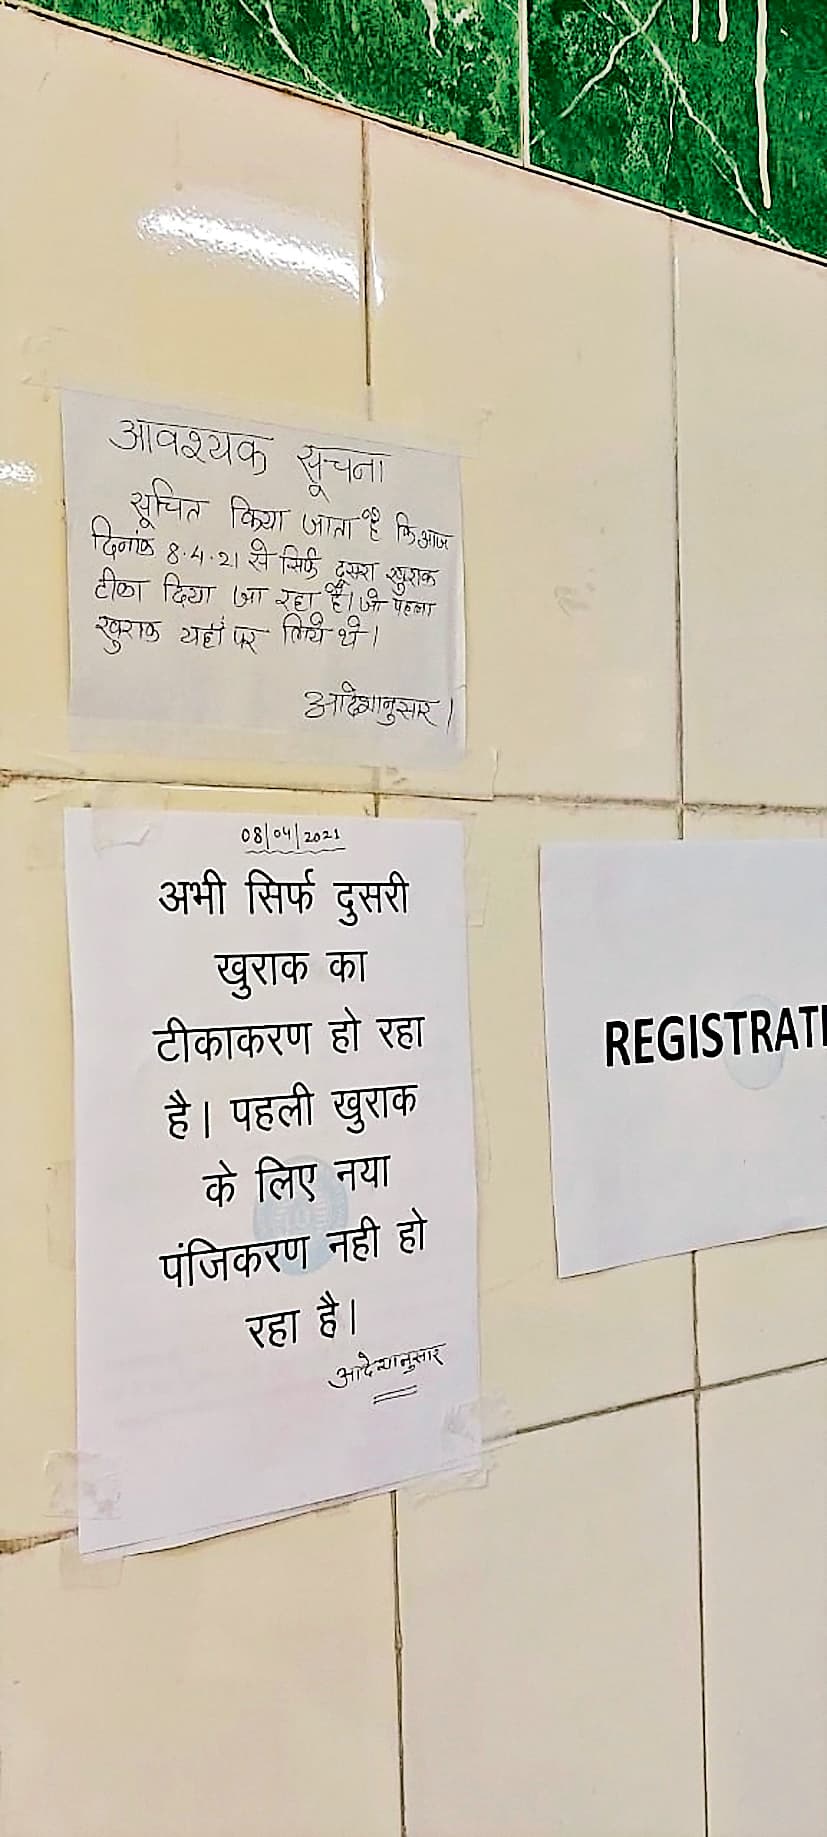 आवश्यक सूचना
सूचित किया जाता है कि आज
दिनांक 8.4.21 से सिर्फ दूसरा खुराक
टीका दिया जा रहा है। जो पहला
खुराक यहाँ पर लिये थे।
आदेशानुसार।
08/04/2021
अभी सिर्फ दुसरी
खुराक का
टीकाकरण हो रहा
है। पहली खुराक
के लिए नया
पंजिकरण नही हो
रहा है।
आदेशानुसार
REGISTRATI